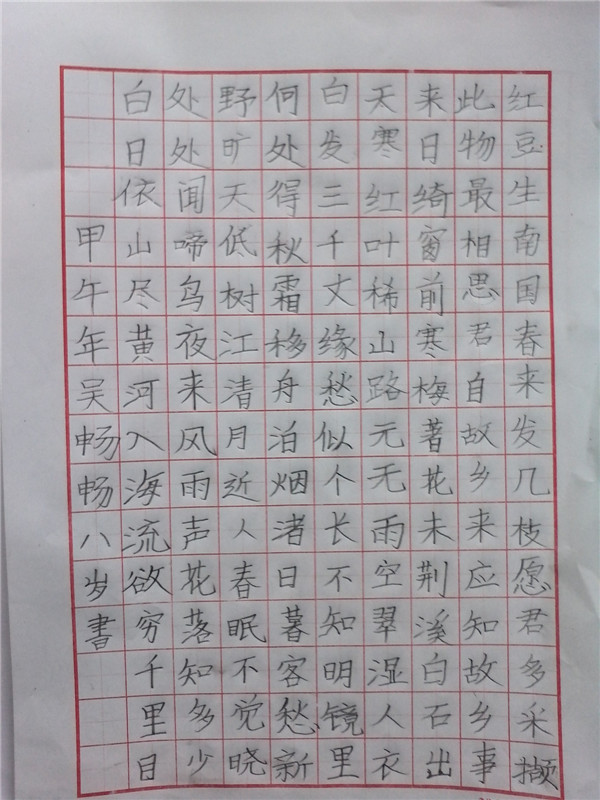 红豆生南国春来发几枝愿君多采撷
此物最相思君自故乡来应知故乡事
来日绮窗前寒梅著花未荆溪白石出
天寒红叶稀山路元无雨空翠湿人衣
白发三千丈缘愁似个长不知明镜里
何处得秋霜移舟泊烟渚日暮客愁新
野旷天低树江清月近人春眠不觉晓
处处闻啼鸟夜来风雨声花落知多少
白日依山尽黄河入海流欲穷千里目
甲午年吴畅畅八岁書